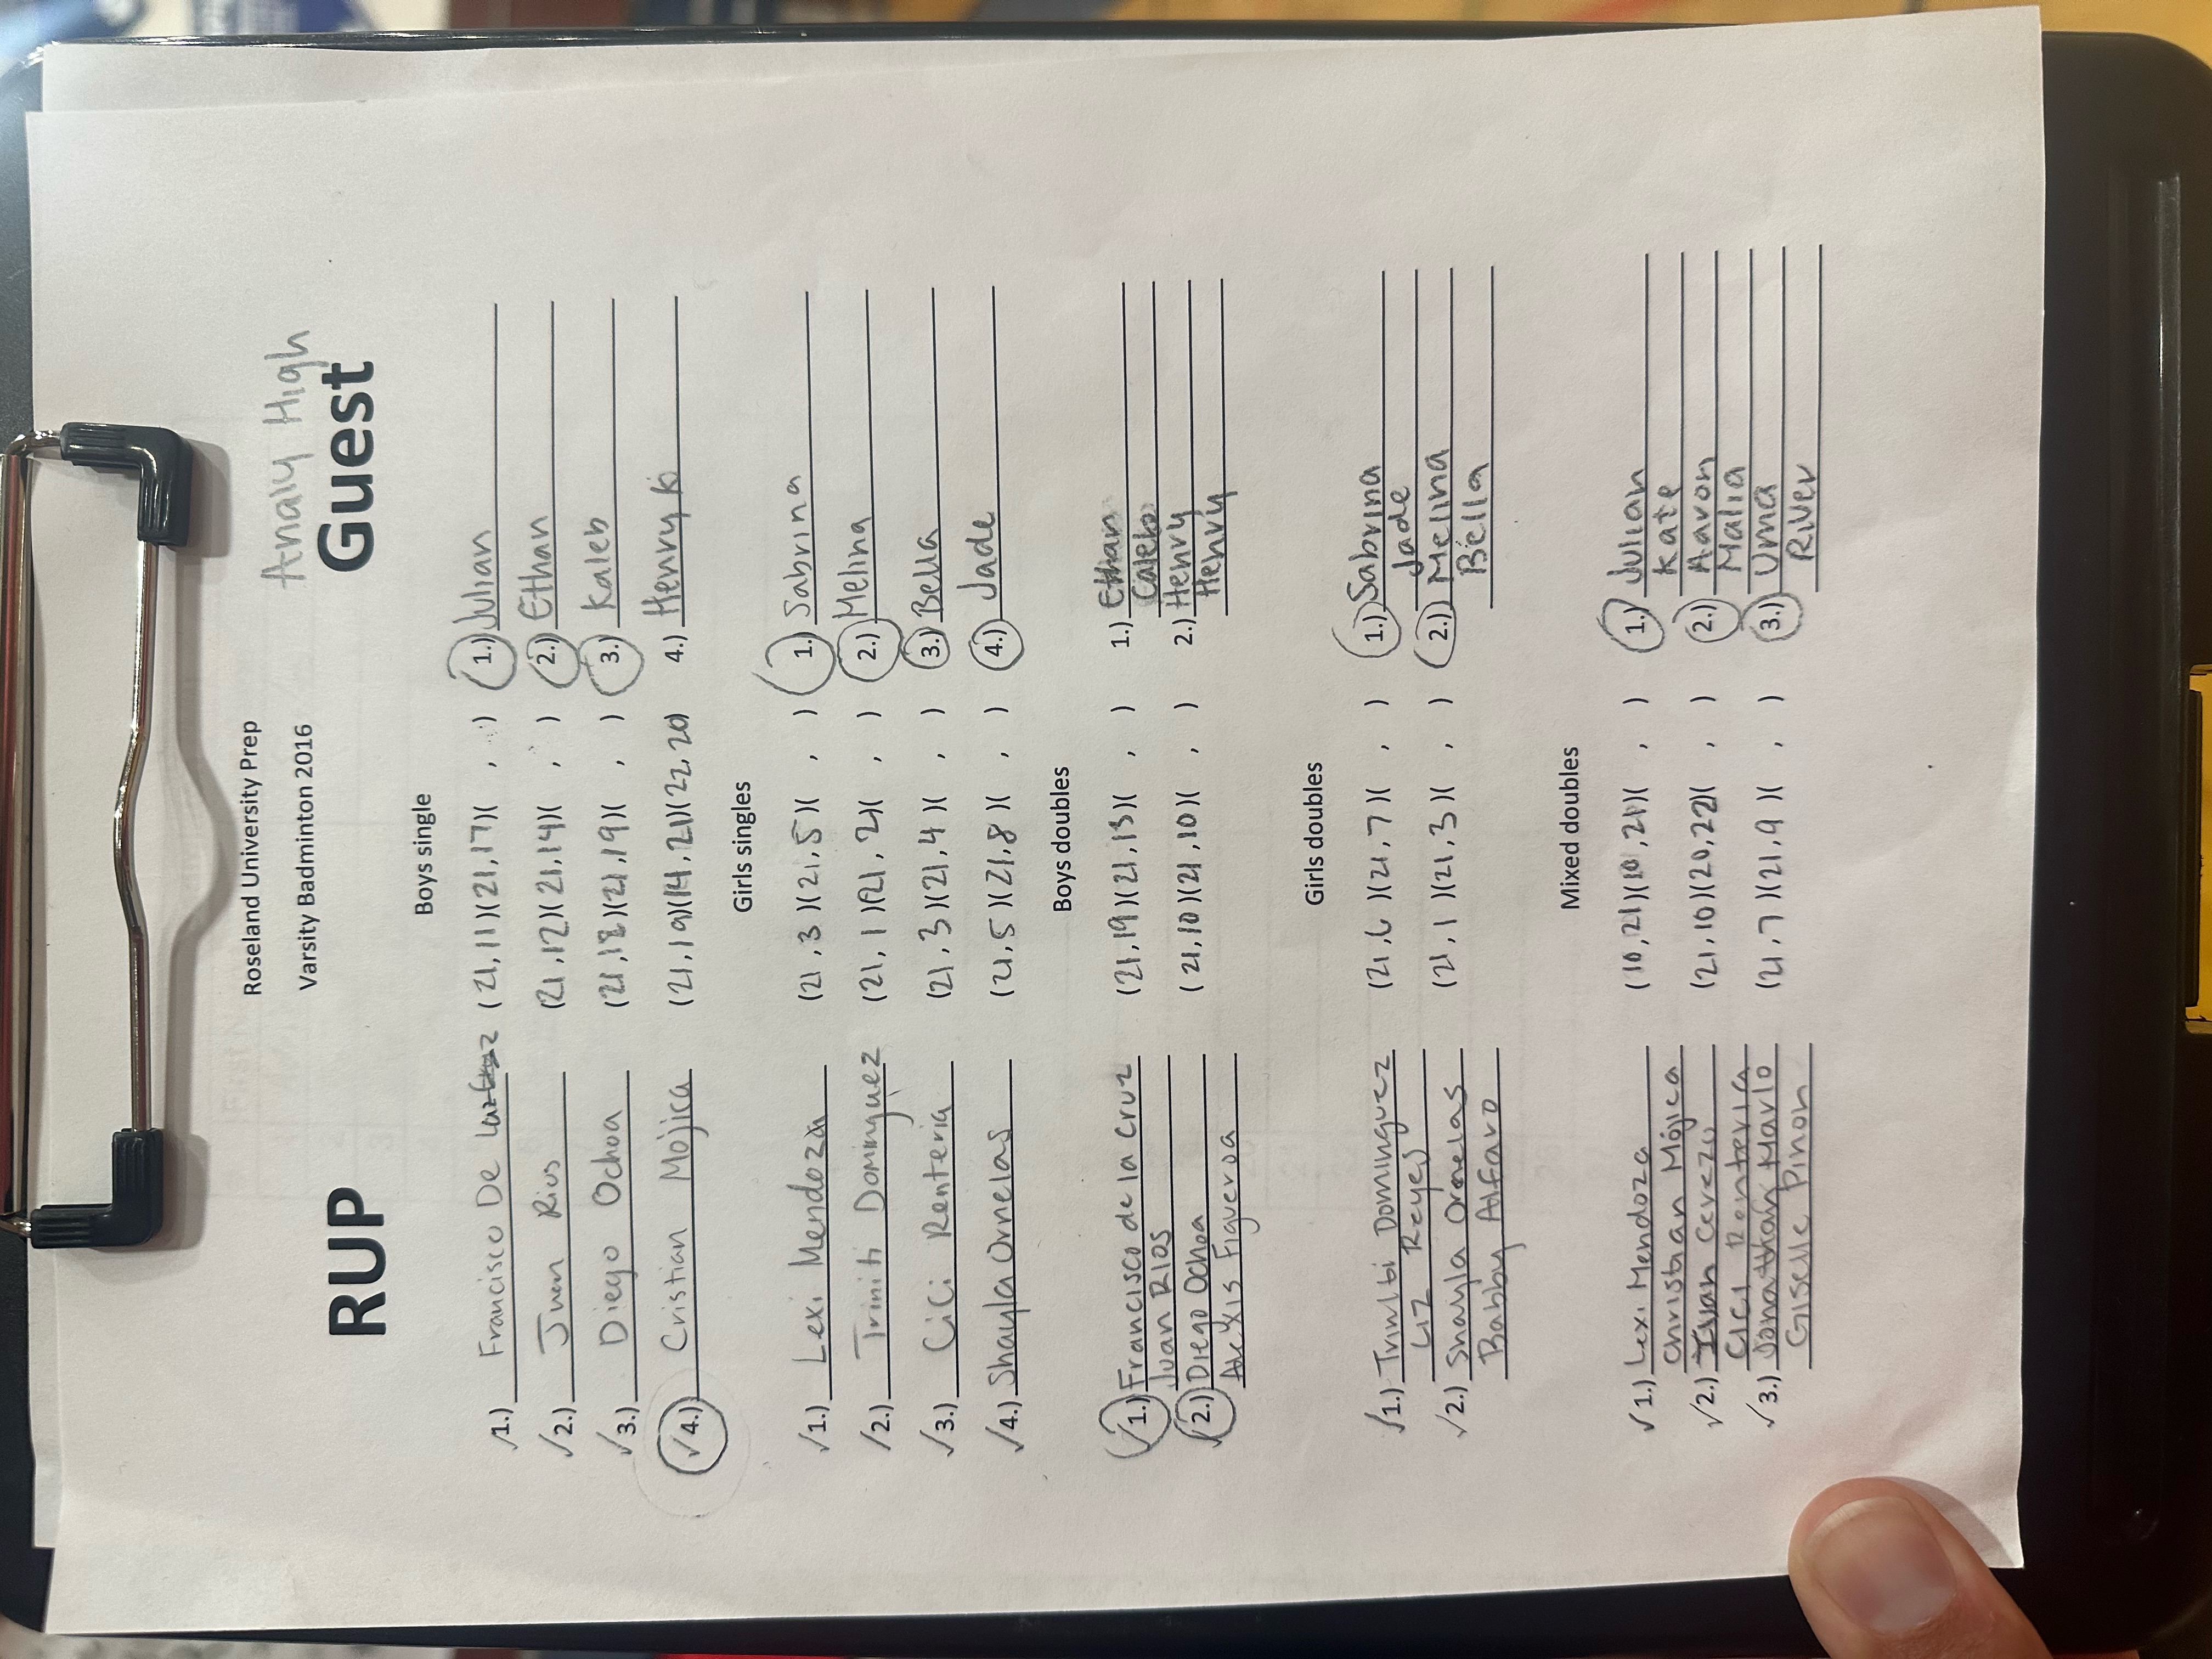 Roseland University Prep
Varsity Badminton 2016
Analy High
RUP Guest
Boys single
√1.) Francisco De La (21,11)(21,17)( , ) 1.) Julian
√2.) Juan Rios (21,12)(21,14)( , ) 2.) Ethan
√3.) Diego Ochoa (21,18)(21,19)( , ) 3.) Kaleb
√4.) Cristian Mojica (21,19)(14,21)(22,20) 4.) Henry k
Girls singles
√1.) Lexi Mendoza (21,3)(21,5)( , ) 1.) Sabrina
√2.) Triniti Dominguez (21,1)(21,2)( , ) 2.) Melina
√3.) CiCi Renteria (21,3)(21,4)( , ) 3.) Bella
√4.) Shayla Ornelas (21,5)(21,8)( , ) 4.) Jade
Boys doubles
√1.) Francisco de la Cruz (21,19)(21,13)( , ) 1.) Ethan
Juan Rios Caleb
√2.) Diego Ochoa (21,10)(21,10)( , ) 2.) Henry
Alexis Figueroa Henry
Girls doubles
√1.) Triniti Dominguez (21,6)(21,7)( , ) 1.) Sabrina
Liz Reyes Jade
√2.) Shayla Ornelas (21,1)(21,3)( , ) 2.) Melina
Babby Alfaro Bella
Mixed doubles
√1.) Lexi Mendoza (10,21)(10,21)( , ) 1.) Julian
Christian Mojica Kate
√2.) Ivan Cerezo (21,10)(20,22)( , ) 2.) Aaron
CiCi Renteria Malia
√3.) Jonathan Marlo (21,7)(21,9)( , ) 3.) Unna
Giselle Pinon River